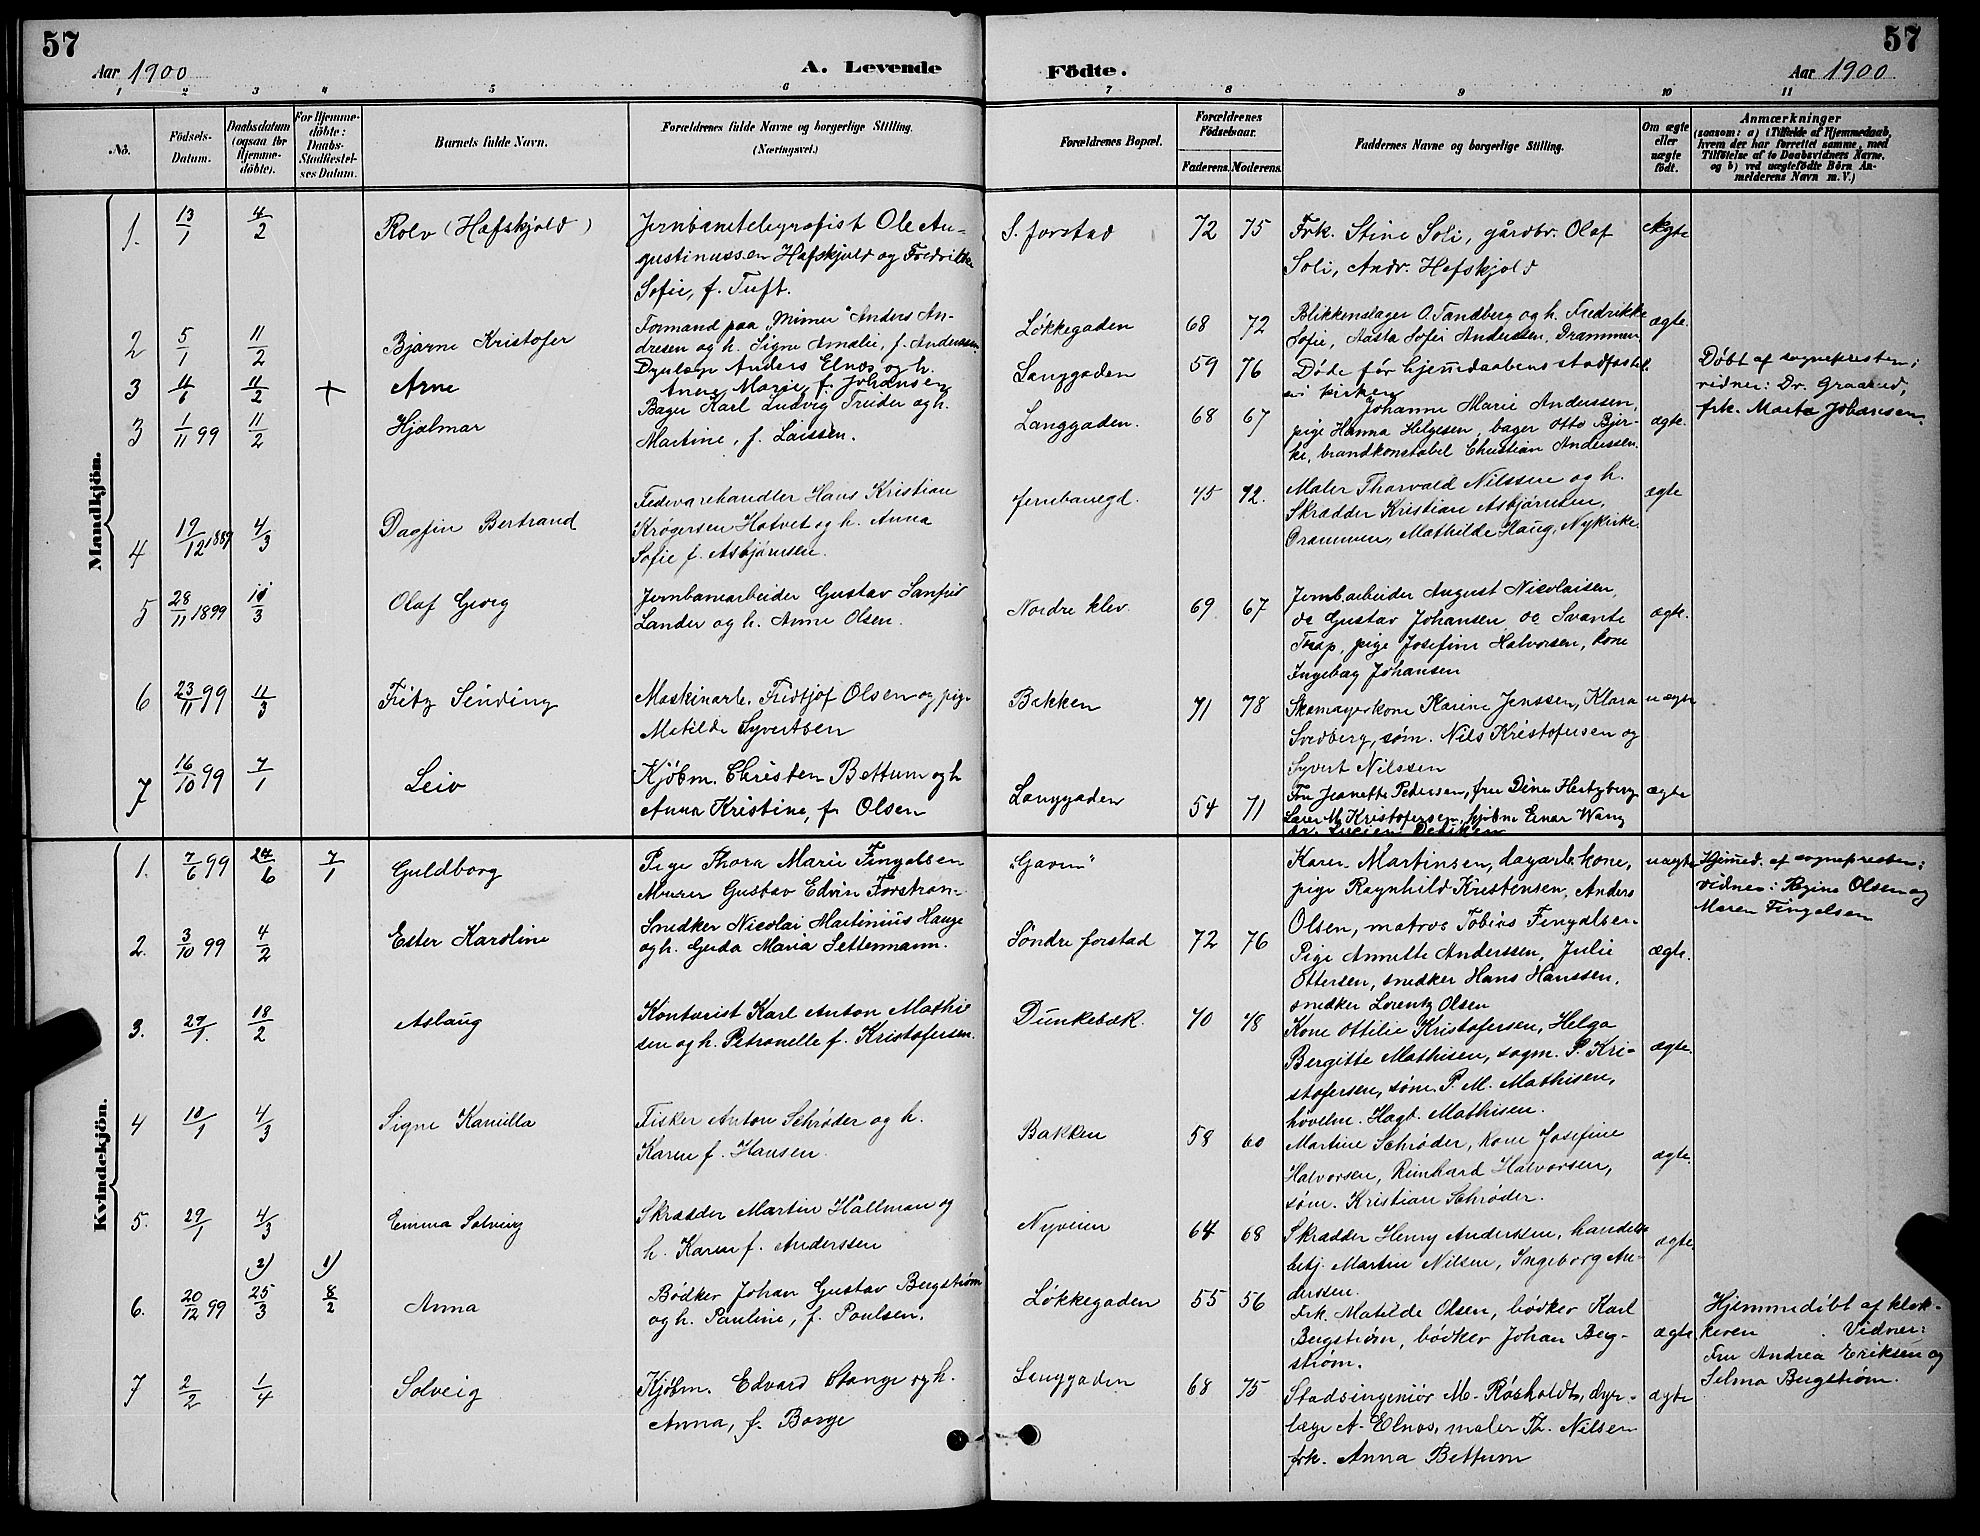 57
Aar 1900
A. Levende Födte.
Aar 1900
57
1 2 3 4 5 6 7 8 9 10 11
No.
Födsels-
Datum.
Daabsdatum
(ogsaa for
Hjemme-
döbte).
For Hjemme-
döbte:
Daabs-
Stadfæstel-
ses Datum.
Barnets fulde Navn.
Forældrenes fulde Navne og borgerlige Stilling.
(Næringsvei.)
Forældrenes Bopæl.
Forældrenes
Födselsaar.
Faderens. Moderens.
Faddernes Navne og borgerlige Stilling.
Om ægte
eller
uægte
födt.
Anmærkninger
(saasom: a) i Tilfælde af Hjemmedaab,
hvem der har forrettet samme, med
Tilföielse af to Daabsvidners Navne,
og b) ved uægtefödte Börn An-
melderens Navn m. V.)
Mandkjön.
1. 13/1 4/2 Rolv (Hafskjold)
Jernbanetelegrafist Ole Au-
gustinussen Hafskjold og Fredrikke
Sofie, f. Tuft.
S. forstad 72 75
Frk. Stine Soli, gårdbr. Olaf
Soli, Andr. Hafskjold
Ægte
2 5/1 11/2 Bjarne Kristofer
Formand paa "Mimer" Anders An-
dresen og h. Signe Amalie, f. Anderssen
Løkkegaden 68 72
Blikkenslager O. Tandberg og h. Fredrikke
Sofie, Aasta Sofie Anderssen, Drammen
ægte.
3 11/2 + Arne
Dyrlæge Anders Elnæs og h.
Anne Marie, f. Johansen
Langgaden 59 76
Døde før hjemdaabens stadfæstel.
i kirken
Døbt af sognepresten;
vidner: Dr. Graarud,
frk. Marta Johansen.
3 1/11 99 11/2 Hjalmar
Bager Karl Ludvig Treider og h.
Martine, f. Larssen.
Langgaden. 68 67
Johanne Marie Anderssen,
pige Hanna Helgesen, bager Otto Bjer-
ke, brandkonstabel Christian Anderssen.
ægte.
4 19/12 1889 4/3 Dagfin Bertrand
Fedevarehandler Hans Kristian
Krøgersen Hotvet og h. Anna
Sofie f. Asbjørnsen.
Jernbanegd. 75 72.
Maler Thorvald Nilssen og h.
Skrædder Kristian Asbjørnsen,
Drammen, Mathilde Haug, Nykirke.
ægte
5 28/11 1899 11/3 Olaf Georg
Jernbanearbeider Gustav Sanfrid
Lander og h. Anne Olsen.
Nordre klev 69 67
Jernb.arbeider August Nicolaisen,
do Gustav Johansen, do Svante
Torap, pige Josefine Halvorsen, kone
Ingebåg Johansen
ægte.
6 23/11 99 11/3 Fritz Sinding
Maskinarb. Fridtjof Olsen og pige
Matilde Syvertsen
Bakken 71 78
Skomagerkone Karine Jenssen, Klara
Svedberg, søm. Nils Kristofersen og
Syvert Nilssen
uægte
7 16/10 99 7/1 Leiv
Kjöbm. Christen Bettum og h
Anna Kristine, f. Olsen
Langgaden 54 71
Fru Jeanette Pedersen, fru Dina Hertzberg
Lærer M. Kristofersen, kjøbm Einar Wang
ægte
Kvindekjön.
1. 7/6 99 24/6 7/1 Guldborg
Pige Thora Marie Fingelsen
Murer Gustav Edvin Forstrøm.
"Gaven"
Karen Martinsen, dagarb. kone,
pige Ragnhild Kristensen, Anders
Olsen, matros Tobias Fingalsen
uægte
Hjemmed. af sognepresten;
vidner: Regine Olsen og
Maren Fingelsen
2. 3/10 99 4/2 Ester Karoline
Snedker Nicolai Martinius Hauge
og h. Gerda Maria Settermann.
Söndre forstad 72 76
Pige Annette Anderssen, Julie
Ottersen, snedker Hans Hanssen,
snedker Lorentz Olsen
ægte.
3. 18/2 Aslaug
Kontorist Karl Anton Mathi
sen og h. Petronelle f. Kristofersen.
Dunkebæk. 70 78
Kone Ottilie Kristofersen, Helga
Bergitte Mathisen, sagm. P. Kri-
stofersen, søm. P. M. Mathisen,
høvelm. Hagb. Mathisen.
ægte.
4 10/1 4/3 Signe Kamilla
Fisker Anton Schrøder og h.
Karen f. Hansen.
Bakken 58 60
Martine Schrøder, kone Josefine
Halvorsen, Reinhard Halvorsen,
søm. Kristian Schrøder.
ægte.
5. 29/1 4/3 Emma Solveig
Skrædder Martin Hållman og
h. Karen f. Anderssen
Nyveien 64 68
Skrædder Henry Anderssen, handels
betj. Martin Nilsen, Ingeborg An-
derssen.
ægte.
6. 20/12 99 2) 25/3 1) 8/2 Anna
Bødker Johan Gustav Bergstrøm
og h. Pauline, f. Poulsen.
Løkkegaden 55 56
Frk. Matilde Olsen, bødker Karl
Bergstrøm, bødker Johan Berg-
strøm.
ægte
Hjemmedöbt af klok-
keren. Vidner:
Fru Andrea Eriksen og
Selma Bergstrøm.
7 2/2 1/4 Solveig
Kjöbm. Edvard Stange og h.
Anna, f. Borge
Langgaden 68 75
Stadsingeniør M. Røsholdt, dyr-
læge A. Elnæs, maler Th. Nilsen
frk. Anna Bettum
ægte